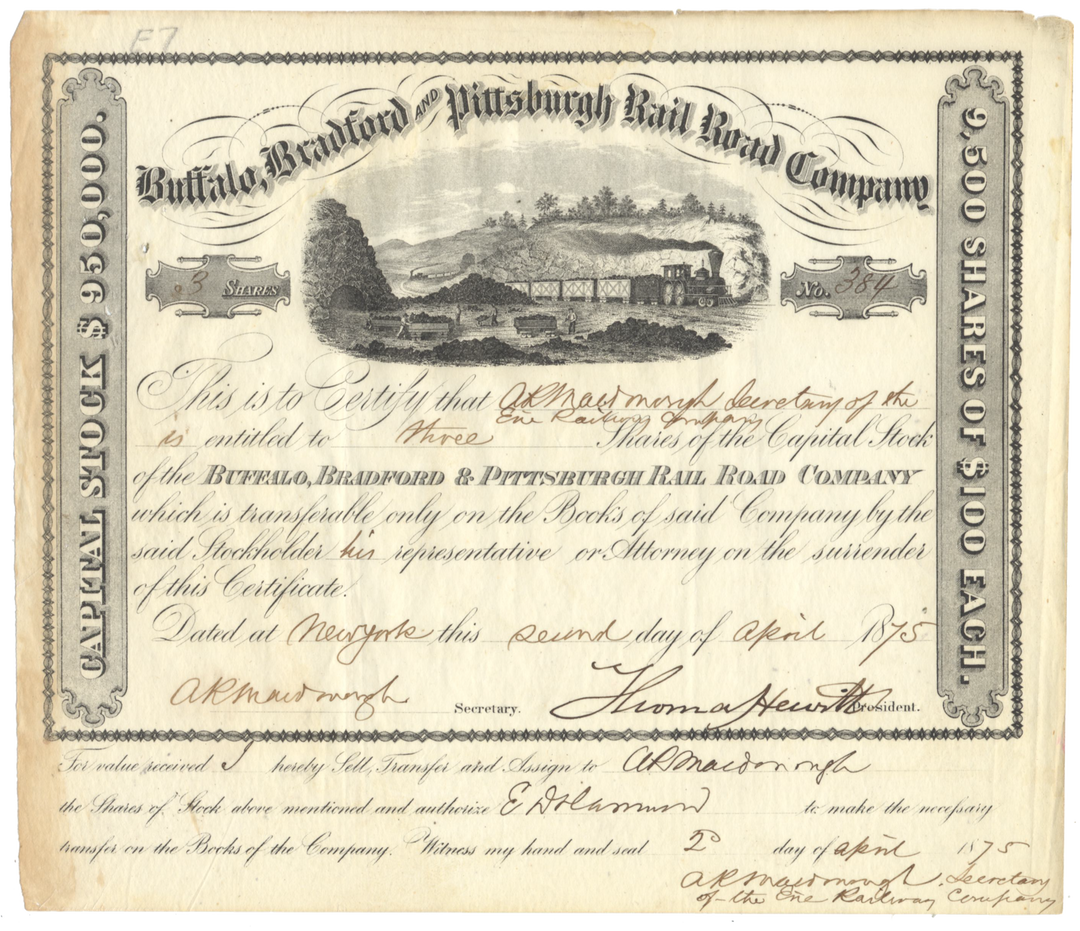 E7
Buffalo, Bradford AND Pittsburgh Rail Road Company
CAPITAL STOCK $950,000.
9,500 SHARES OF $100 EACH.
3 SHARES
No. 384
This is to Certify that A R Macdonough Secretary of the
Erie Railway Company
is entitled to three Shares of the Capital Stock
of the BUFFALO, BRADFORD & PITTSBURGH RAIL ROAD COMPANY
which is transferable only on the Books of said Company by the
said Stockholder his representative or Attorney on the surrender
of this Certificate.
Dated at New York this second day of April 1875
A R Macdonough Secretary. Thomas Hewitt President.
For value received I hereby Sell, Transfer and Assign to A R Macdonough
the Shares of Stock above mentioned and authorize E D to make the necessary
transfer on the Books of the Company. Witness my hand and seal 2d day of April 1875
A R Macdonough, Secretary
of the Erie Railway Company